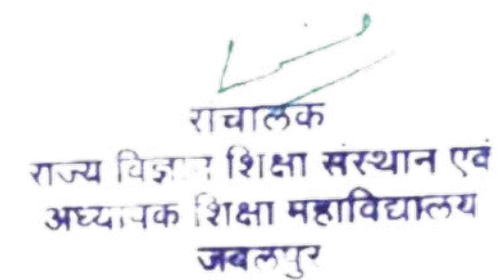 संचालक
राज्य विज्ञान शिक्षा संस्थान एवं
अध्यापक शिक्षा महाविद्यालय
जबलपुर